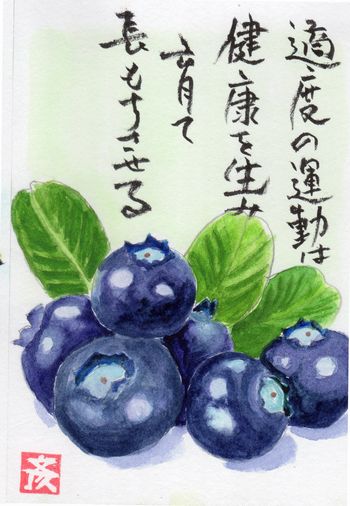 適度の運動は
健康を生み
育て
長もちさせる
彦